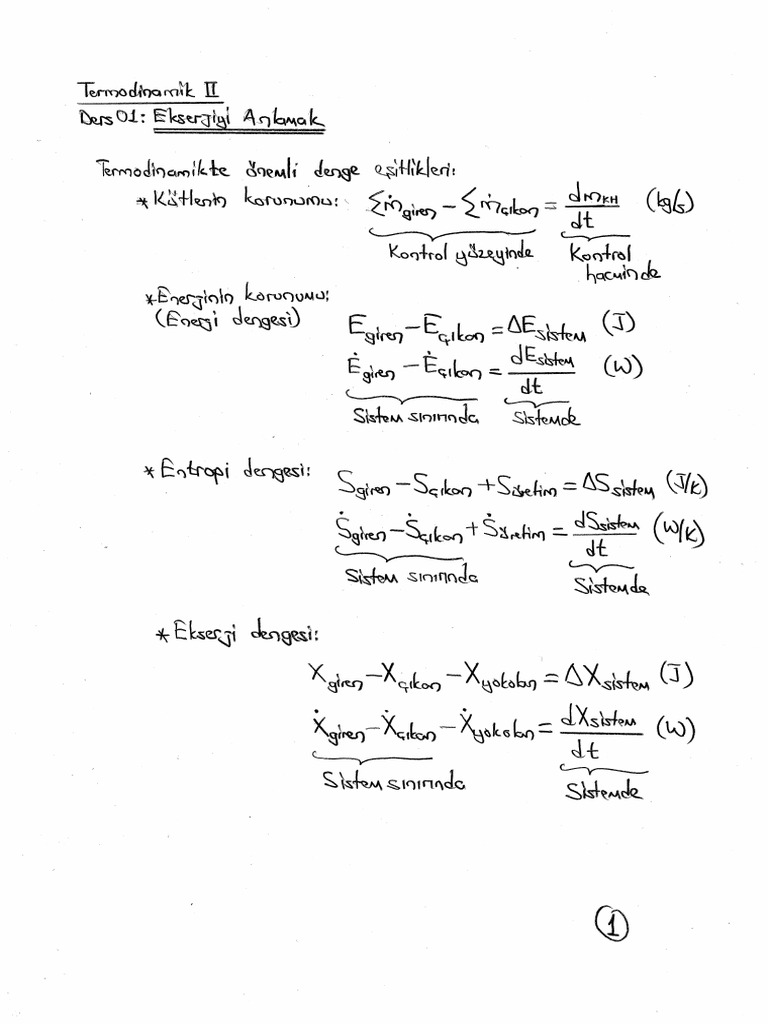 Termodinamik II
Ders 01: Ekserjiyi Anlamak
Termodinamikte önemli denge eşitlikleri:
* Kütlenin korunumu: Σṁgiren − Σṁçıkan = dmKH/dt (kg/s)
Kontrol yüzeyinde Kontrol hacminde
* Enerjinin korunumu:
(Enerji dengesi)
Egiren − Eçıkan = ΔEsistem (J)
Ėgiren − Ėçıkan = dEsistem/dt (W)
Sistem sınırında Sistemde
* Entropi dengesi:
Sgiren − Sçıkan + Süretim = ΔSsistem (J/K)
Ṡgiren − Ṡçıkan + Ṡüretim = dSsistem/dt (W/K)
Sistem sınırında Sistemde
* Ekserji dengesi:
Xgiren − Xçıkan − Xyokolan = ΔXsistem (J)
Ẋgiren − Ẋçıkan − Ẋyokolan = dXsistem/dt (W)
Sistem sınırında Sistemde
1